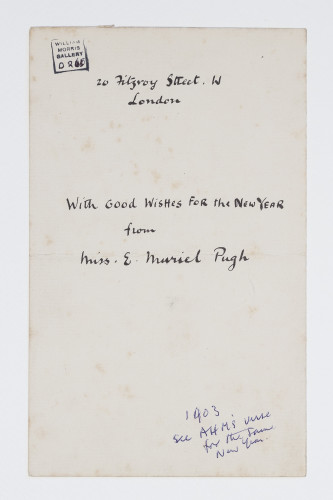 WILLIAM
MORRIS
GALLERY
20 Fitzroy Street. W
London
With Good Wishes For the New Year
from
Miss. E. Muriel Pugh
1903
see AHM's verse
for the same
New Year